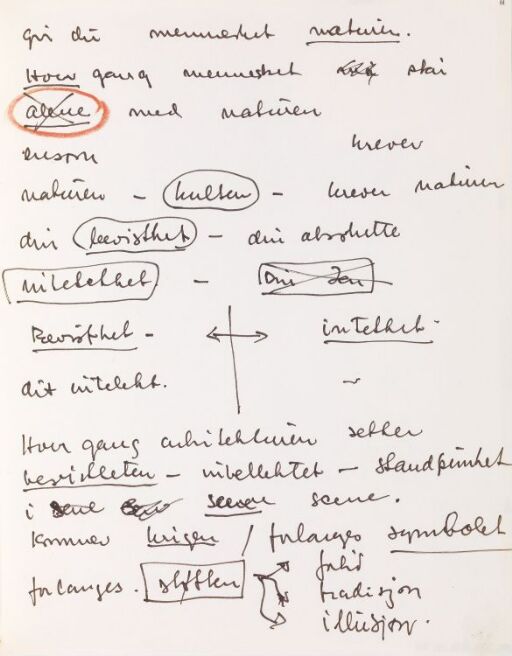 gir du mennesket naturen.
Hver gang mennesket står
alene med naturen
ensom krever
naturen – kulten – krever naturen
din bevissthet – din absolutte
intetethet – Din Zen
Bevissthet – intethet.
dit intelekt. ~
Hver gang arkitekturen setter
bevissteten – intellektet – standpunktet
i scene scenen scene.
Kommer krigen / forlanges symbolet
forlanges. slotten falsk
tradisjon
illusjon.